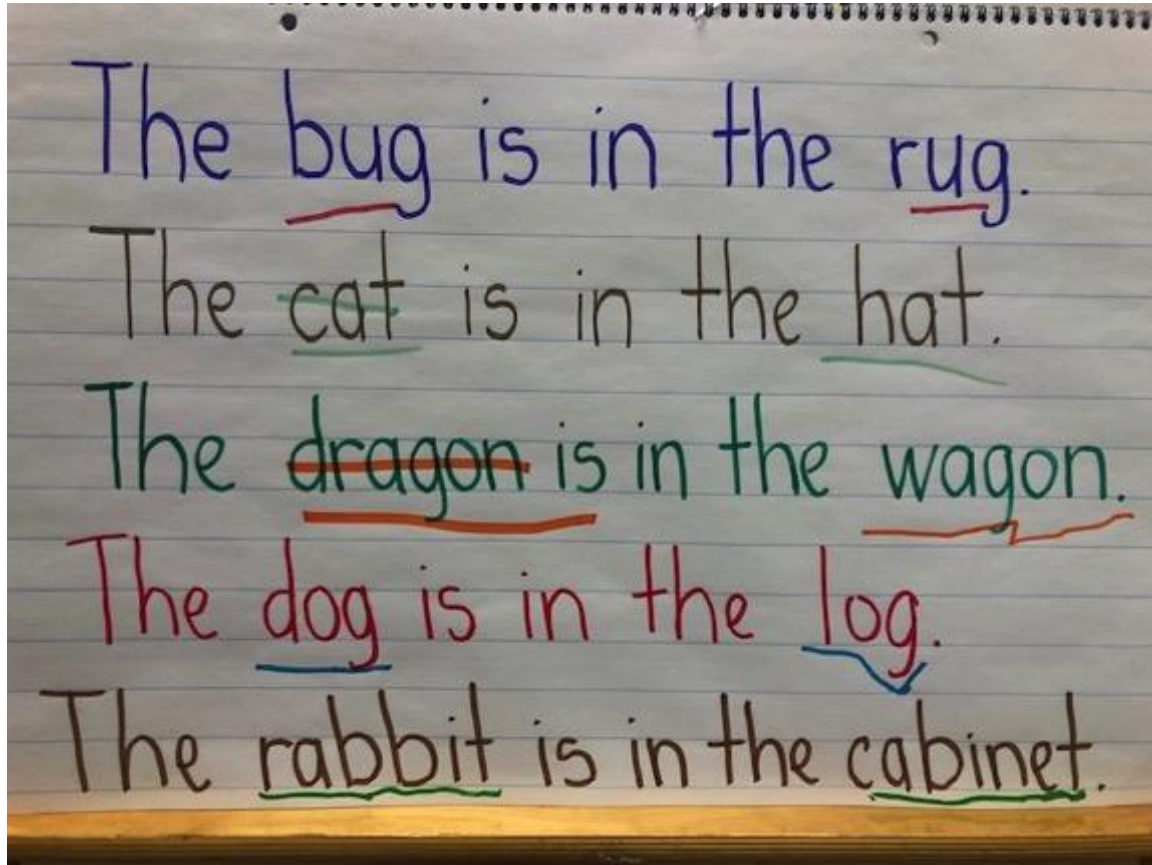 The bug is in the rug.
The cat is in the hat.
The dragon is in the wagon.
The dog is in the log.
The rabbit is in the cabinet.